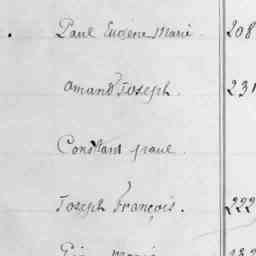 Paul Eugène Marie 208
Amand Joseph. 231
Constant paul
Joseph François. 222